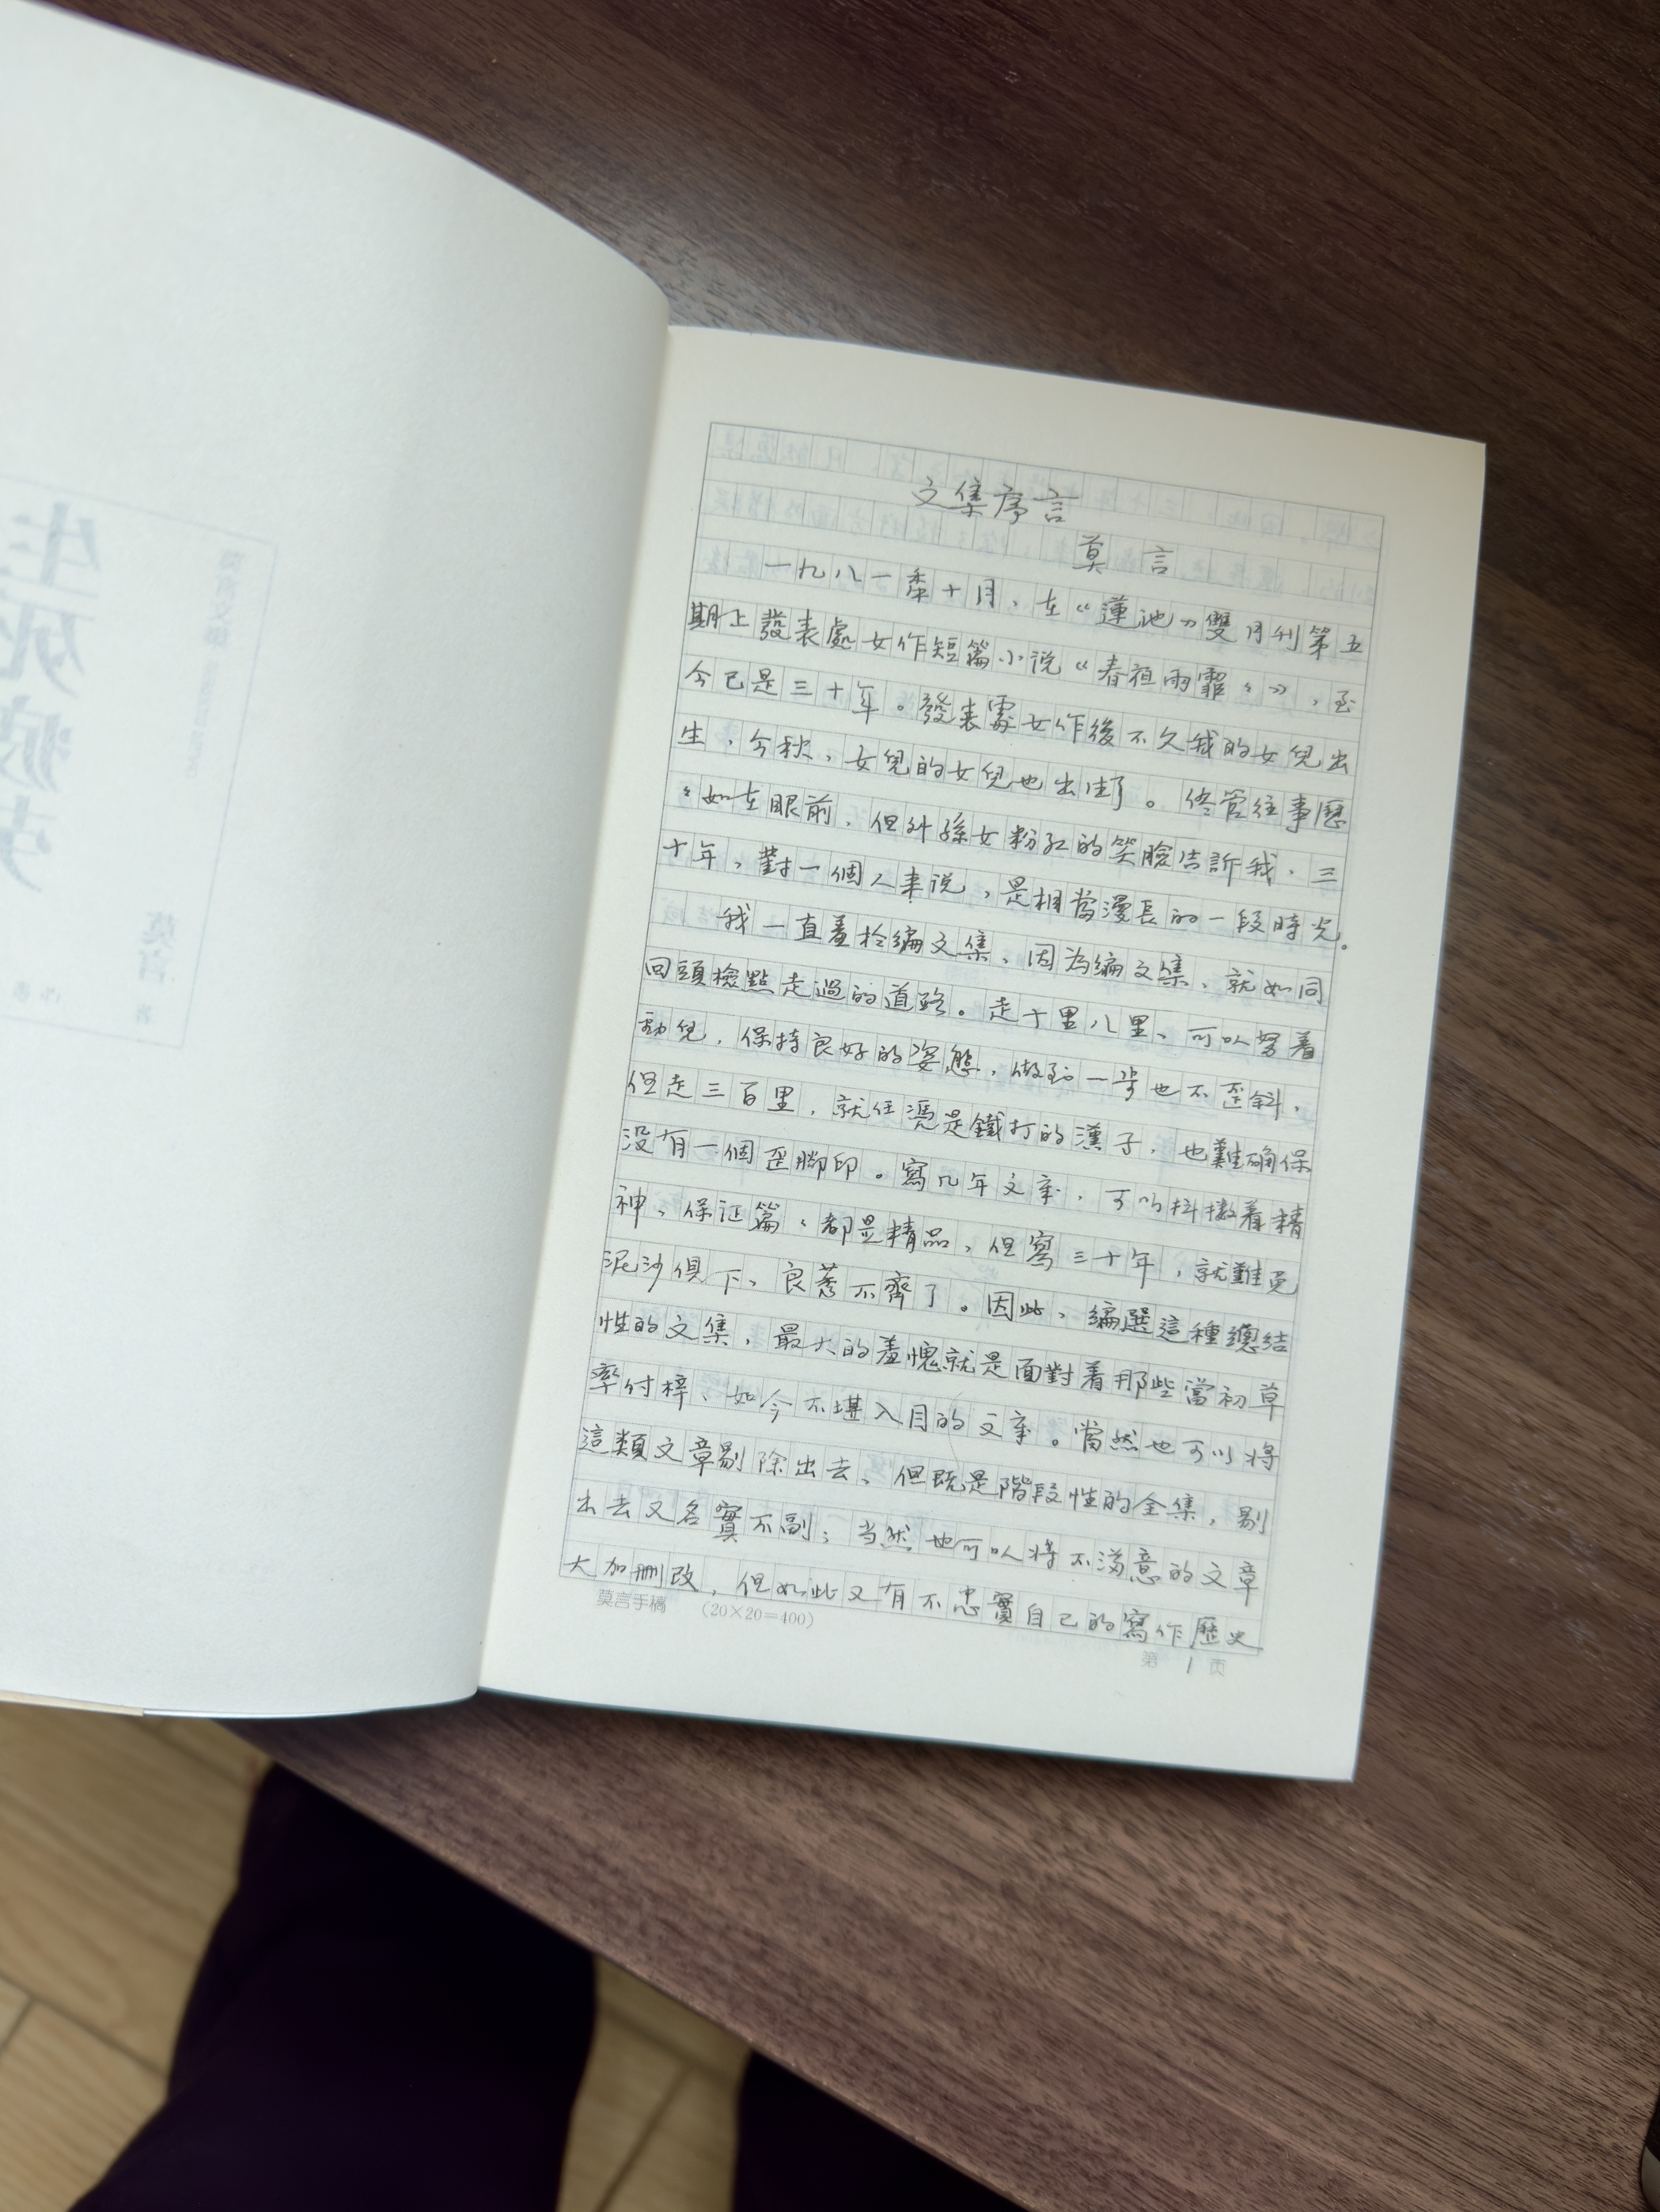 文集序言
莫言
一九八一年十月，在《蓮池》雙月刊第五
期上發表處女作短篇小说《春夜雨霏々》，至
今已是三十年。發表處女作後不久我的女兒出
生，今秋，女兒的女兒也出生了。儘管往事歷
々如在眼前，但外孫女粉红的笑臉告訴我，三
十年，對一個人来说，是相當漫長的一段時光。
我一直羞於编文集，因為编文集，就如同
回頭檢點走過的道路。走十里八里，可以努着
勁兒，保持良好的姿態，做到一步也不歪斜，
但走三百里，就任凭是鐵打的漢子，也難确保
没有一個歪脚印。寫几年文章，可以抖擞着精
神，保证篇々都是精品，但寫三十年，就難免
泥沙俱下、良莠不齊了。因此，编選這種總结
性的文集，最大的羞愧就是面對着那些當初草
率付梓、如今不堪入目的文章。當然也可以将
這類文章剔除出去，但既是階段性的全集，剔
出去又名實不副；当然也可以将不满意的文章
大加删改，但如此又有不忠實自己的寫作歷史
莫言手稿 （20×20=400）
第 1 页
生死疲劳
莫言文集
莫言
著